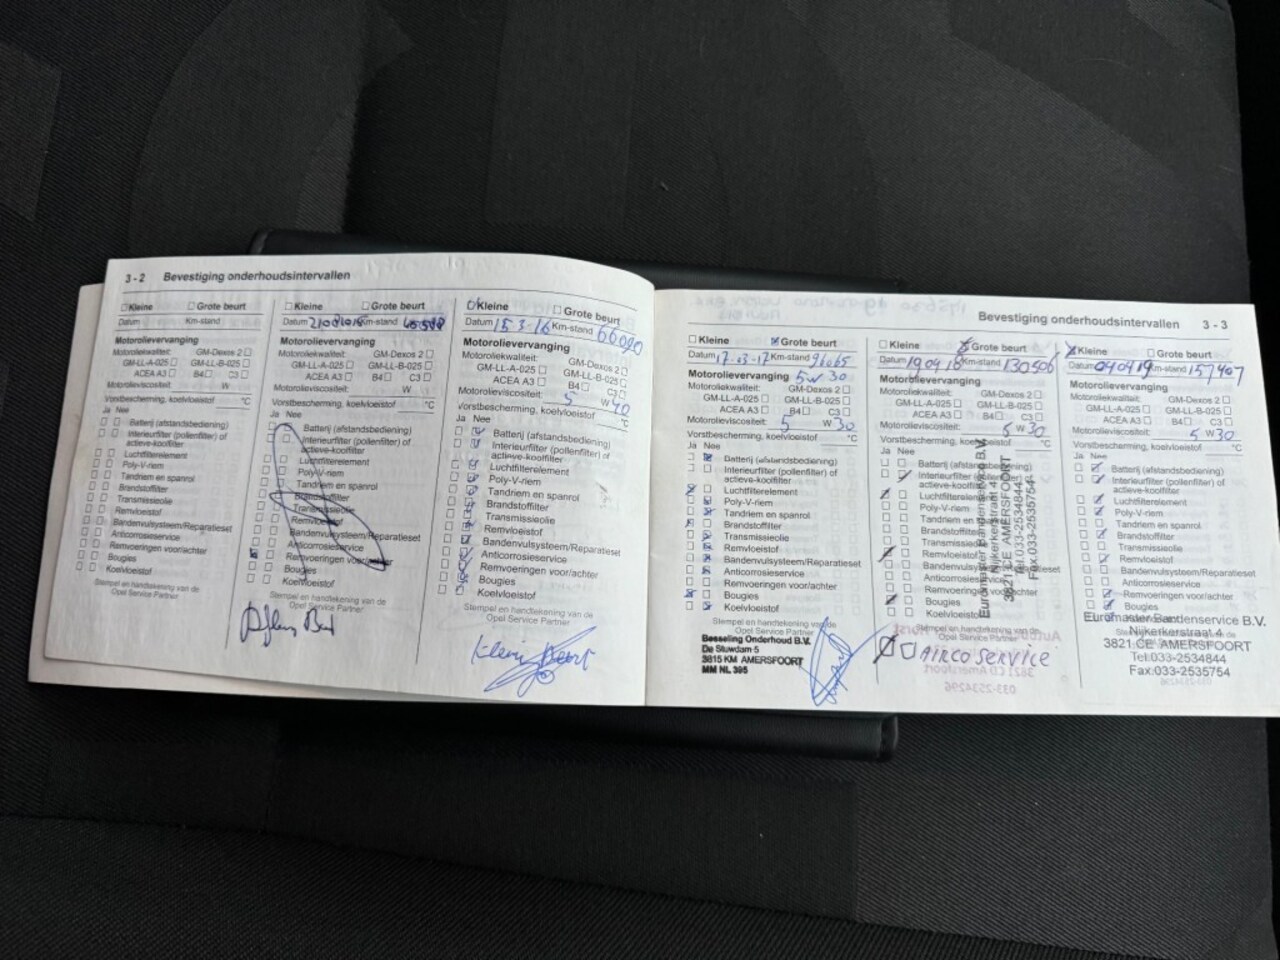 3 - 2 Bevestiging onderhoudsintervallen
Kleine Grote beurt
Datum Km-stand
Motorolievervanging
Motoroliekwaliteit: GM-Dexos 2
GM-LL-A-025 GM-LL-B-025
ACEA A3 B4 C3
Motorolieviscositeit: W
Vorstbescherming, koelvloeistof °C
Ja Nee
Batterij (afstandsbediening)
Interieurfilter (pollenfilter) of
actieve-koolfilter
Luchtfilterelement
Poly-V-riem
Tandriem en spanrol
Brandstoffilter
Transmissieolie
Remvloeistof
Bandenvulsysteem/Reparatieset
Anticorrosieservice
Remvoeringen voor/achter
Bougies
Koelvloeistof
Stempel en handtekening van de
Opel Service Partner
Kleine Grote beurt
Datum Km-stand
Motorolievervanging
Motoroliekwaliteit: GM-Dexos 2
GM-LL-A-025 GM-LL-B-025
ACEA A3 B4 C3
Motorolieviscositeit: W
Vorstbescherming, koelvloeistof °C
Ja Nee
Batterij (afstandsbediening)
Interieurfilter (pollenfilter) of
actieve-koolfilter
Luchtfilterelement
Poly-V-riem
Tandriem en spanrol
Brandstoffilter
Transmissieolie
Remvloeistof
Bandenvulsysteem/Reparatieset
Anticorrosieservice
Remvoeringen voor/achter
Bougies
Koelvloeistof
Stempel en handtekening van de
Opel Service Partner
Kleine Grote beurt
Datum 15-3-16 Km-stand 66090
Motorolievervanging
Motoroliekwaliteit: GM-Dexos 2
GM-LL-A-025 GM-LL-B-025
ACEA A3 B4 C3
Motorolieviscositeit: 5 W 40
Vorstbescherming, koelvloeistof °C
Ja Nee
Batterij (afstandsbediening)
Interieurfilter (pollenfilter) of
actieve-koolfilter
Luchtfilterelement
Poly-V-riem
Tandriem en spanrol
Brandstoffilter
Transmissieolie
Remvloeistof
Bandenvulsysteem/Reparatieset
Anticorrosieservice
Remvoeringen voor/achter
Bougies
Koelvloeistof
Stempel en handtekening van de
Opel Service Partner
Kleine Beurt
Bevestiging onderhoudsintervallen 3 - 3
Kleine Grote beurt
Datum 17-03-17 Km-stand 96065
Motorolievervanging 5W30
Motoroliekwaliteit: GM-Dexos 2
GM-LL-A-025 GM-LL-B-025
ACEA A3 B4 C3
Motorolieviscositeit: 5 W 30
Vorstbescherming, koelvloeistof °C
Ja Nee
Batterij (afstandsbediening)
Interieurfilter (pollenfilter) of
actieve-koolfilter
Luchtfilterelement
Poly-V-riem
Tandriem en spanrol
Brandstoffilter
Transmissieolie
Remvloeistof
Bandenvulsysteem/Reparatieset
Anticorrosieservice
Remvoeringen voor/achter
Bougies
Koelvloeistof
Stempel en handtekening van de
Opel Service Partner
Besseling Onderhoud B.V.
De Stuwdam 5
3815 KM AMERSFOORT
MM NL 395
Kleine Grote beurt
Datum 190418 Km-stand 130506
Motorolievervanging
Motoroliekwaliteit: GM-Dexos 2
GM-LL-A-025 GM-LL-B-025
ACEA A3 B4 C3
Motorolieviscositeit: 5 W 30
Vorstbescherming, koelvloeistof °C
Ja Nee
Batterij (afstandsbediening)
Interieurfilter (pollenfilter) of
actieve-koolfilter
Luchtfilterelement
Poly-V-riem
Tandriem en spanrol
Brandstoffilter
Transmissieolie
Remvloeistof
Bandenvulsysteem/Reparatieset
Anticorrosieservice
Remvoeringen voor/achter
Bougies
Koelvloeistof
Stempel en handtekening van de
Opel Service Partner
Euromaster Bandenservice B.V.
Nijkerkerstraat 4
3821 CE AMERSFOORT
Tel:033-2534844
Fax:033-2535754
AIRCO SERVICE
Kleine Grote beurt
Datum 040419 Km-stand 157407
Motorolievervanging
Motoroliekwaliteit: GM-Dexos 2
GM-LL-A-025 GM-LL-B-025
ACEA A3 B4 C3
Motorolieviscositeit: 5 W 30
Vorstbescherming, koelvloeistof °C
Ja Nee
Batterij (afstandsbediening)
Interieurfilter (pollenfilter) of
actieve-koolfilter
Luchtfilterelement
Poly-V-riem
Tandriem en spanrol
Brandstoffilter
Transmissieolie
Remvloeistof
Bandenvulsysteem/Reparatieset
Anticorrosieservice
Remvoeringen voor/achter
Bougies
Euromaster Bandenservice B.V.
Nijkerkerstraat 4
3821 CE AMERSFOORT
Tel:033-2534844
Fax:033-2535754